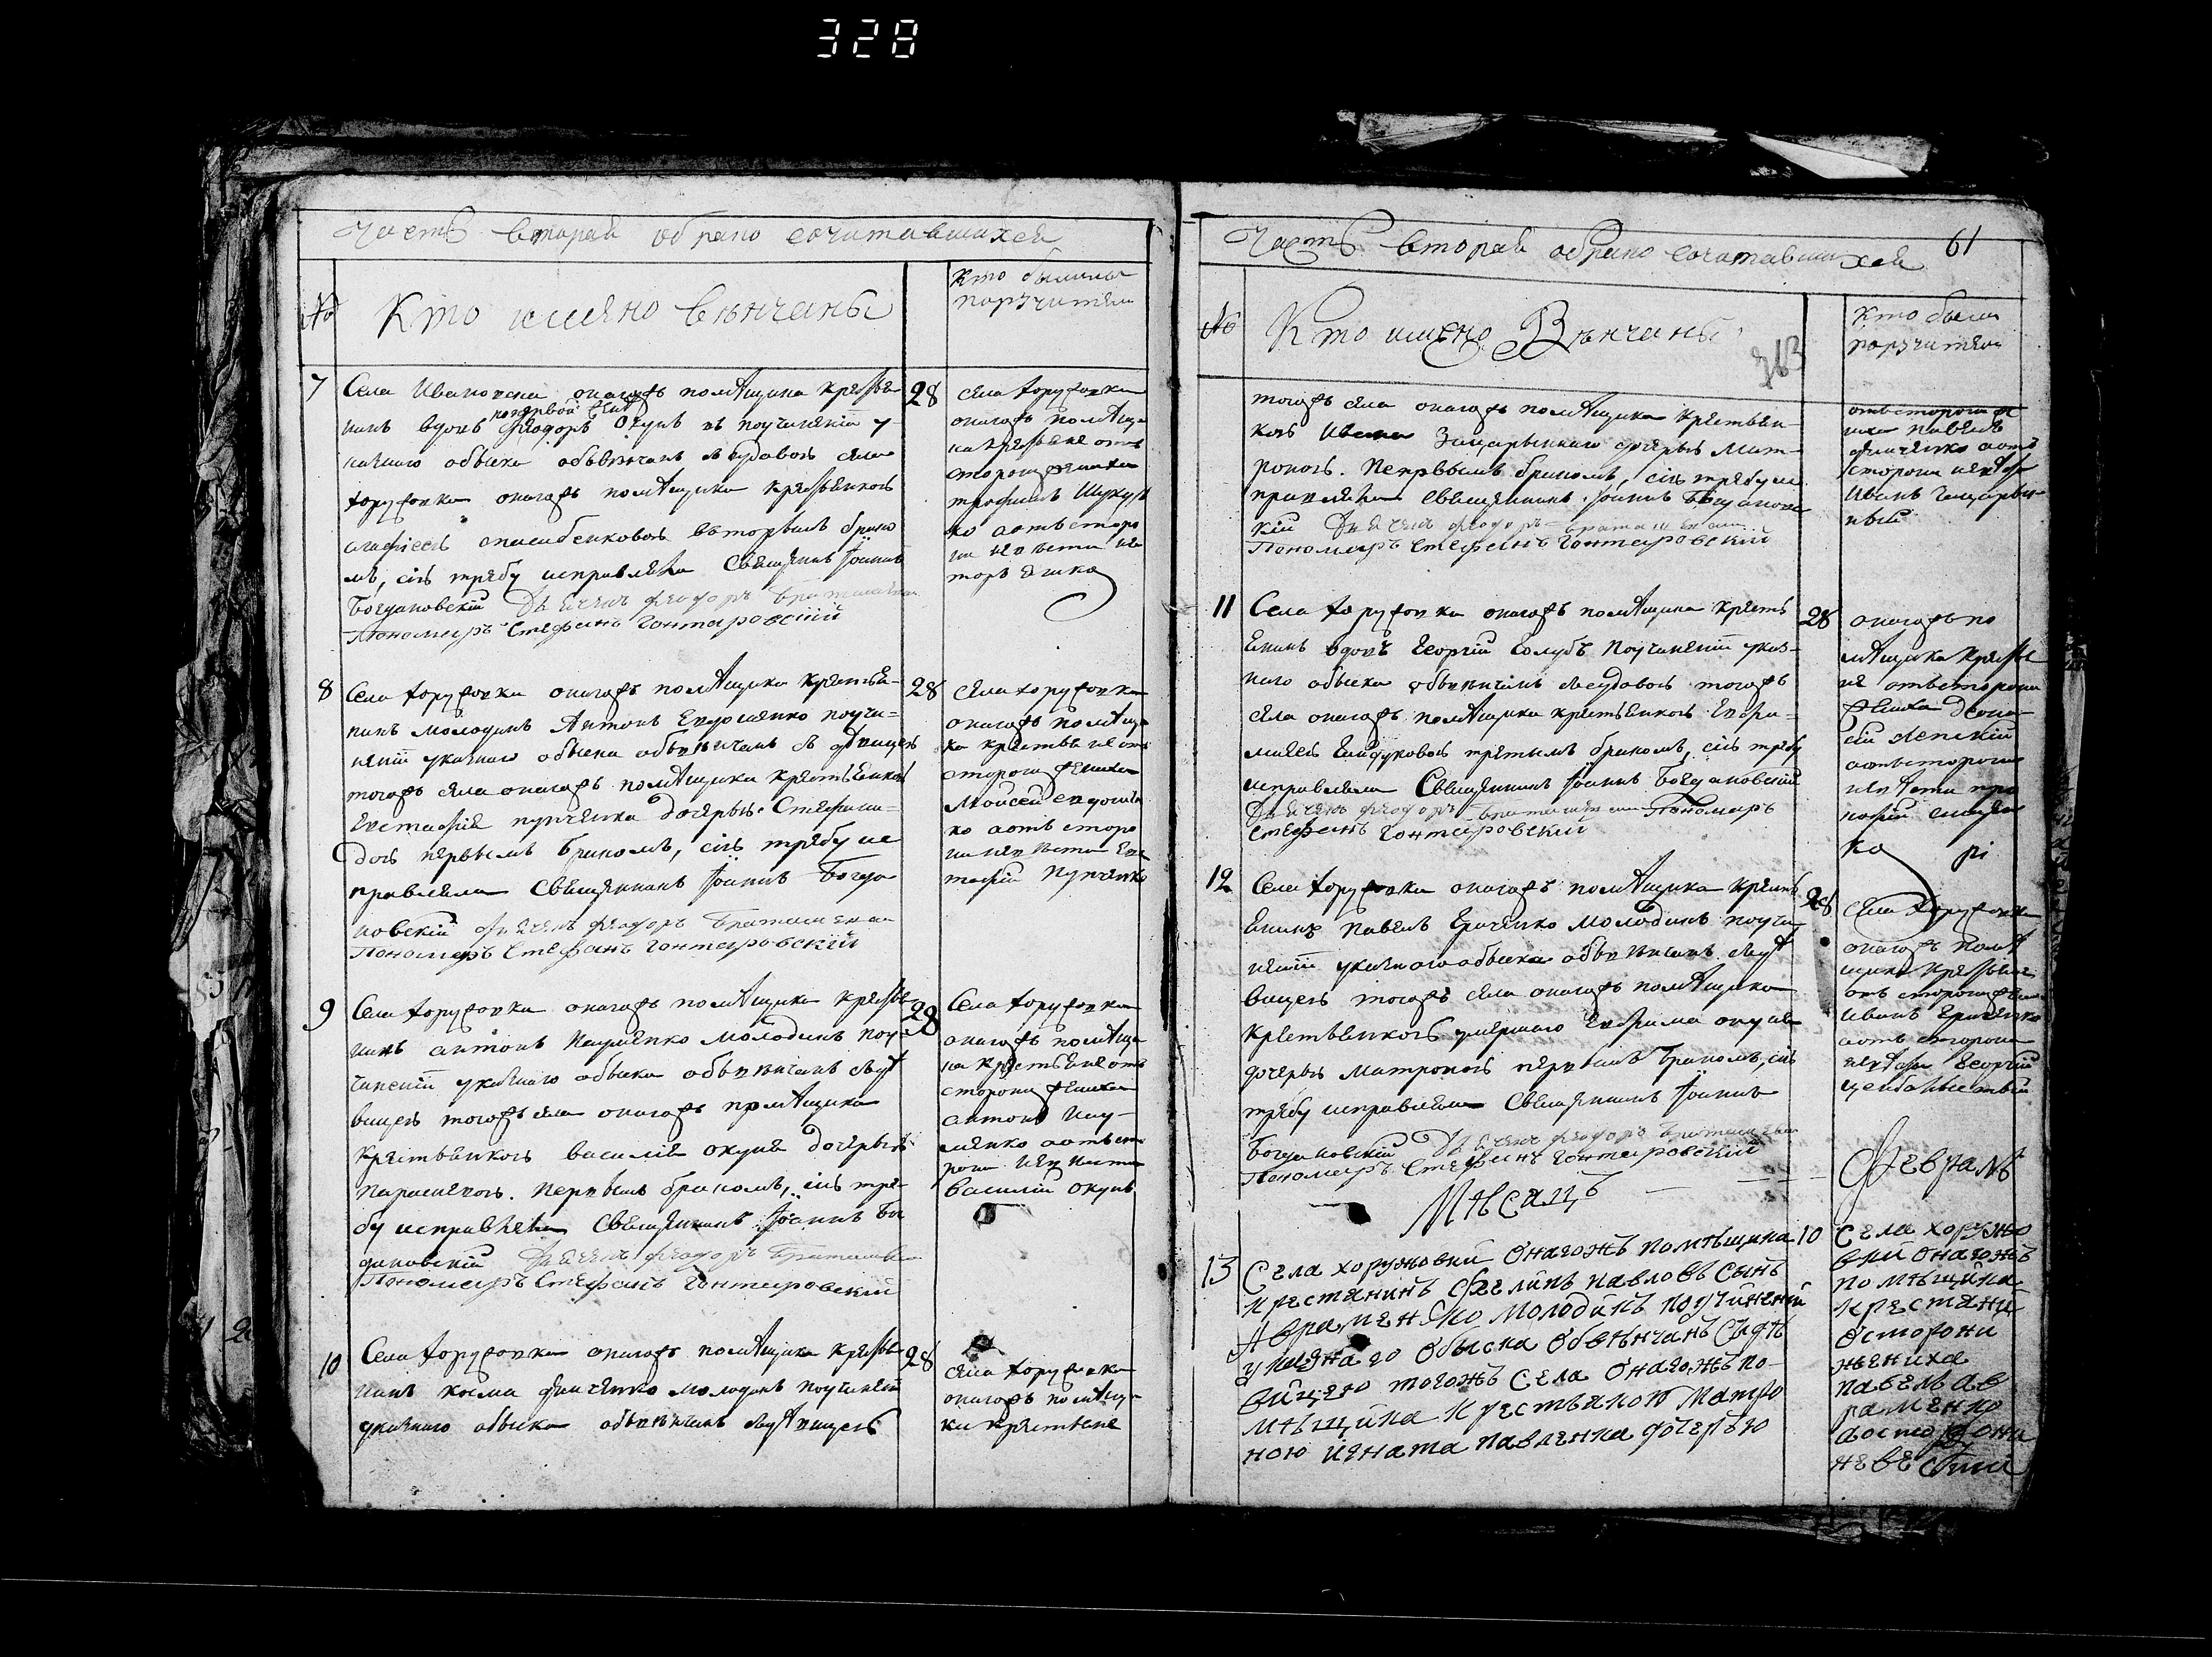 328
Часть вторая обрако сочитавшихся
№
Кто имяно венчаны
Кто были
поручители
7
Села Ивановки онагожъ помѣщика крестья
попервой женѣ
нинъ вдовъ Феодоръ Окунъ по учинении у-
казнаго обыска обвѣнчанъ въдовою села
Хоружовки онагожъ помѣщика крестьянкою
вторымъ брако
мъ, сію требу исправляла Священникъ Іоаннъ
Богдановскій Дьячекъ Феодоръ
Пономаръ Стефанъ Гонтаровскій
28
села Хоружовки
онагожъ помѣщи
ка крестьяне отъ
стороны жениха
трофимъ
ко аотъ сторо
ны невѣсти
8
Села Хоружовки онагожъ помѣщика крестья-
нинъ молодикъ Антонъ Евдошенко поучи=
нении указнаго обыска обвѣнчанъ съ дѣвицею
тогожъ села онагожъ помѣщика крестьянкою
Евстафія пупченка дочерью Стефани=
дою первымъ бракомъ, сію требу ис
правляла Священникъ Іоаннъ Богда
новскій Дьячекъ Феодоръ
Пономаръ Стефанъ Гонтаровскій
28
села Хоружовки
онагожъ помѣщи
ка крестьяне отъ
стороны жениха
Моисей евдошен
ко аотъ сторо
ны невѣсти Евс
тафій Пупченко
9
Села Хоружовки онагожъ помѣщика крестья
нинъ антонъ Науменко молодикъ поу
чинении указнаго обыска обвѣнчанъ сдѣ
вицею тогожъ села онагожъ помѣщика
крестьянкою василія окуня дочерью
Параскевою. Первымъ бракомъ, сію тре-
бу исправляла Священникъ Іоаннъ Бог
дановскій Дьячекъ Феодоръ
Пономаръ Стефанъ Гонтаровскій
28
Села Хоружовки
онагожъ помѣщи
ка крестьяне отъ
стороны жениха
антонъ Нау-
менко аотъ сто
роны невѣсти
василій окунь
10
Села Хоружовки онагожъ помѣщика крестья
нинъ косма молодикъ поучинении
указнаго обыска обвѣнчанъ сдѣвицею
28
села Хоружовки
онагожъ помѣщи-
ка крестьяне
Часть вторая обрако сочитавшихся
61
№
Кто имяно Вѣнчаны
363
Кто были
поручители
тогожъ села онагожъ помѣщика крестьян-
кою Ивана дочерью Мат-
роною. Первымъ бракомъ, сію требу ис
правляла Священникъ Іоаннъ Богданов
кій Дьячекъ Феодоръ
Пономаръ Стефанъ Гонтаровскій
отъ стороны же
ниха павелъ
аотъ
стороны невѣсти
Иванъ
ный
11
Села Хоружовки онагожъ помѣщика крестъ
янинъ вдовъ Георгій Голубъ Поучинении указ-
наго обыска обвѣнчанъ съвдовою тогожъ
села онагожъ помѣщика крестьянкою Евфи=
міею третьимъ бракомъ, сію требу
исправляла Священникъ Іоаннъ Богдановскій
Дьячекъ Феодоръ Пономаръ
Стефанъ Гонтаровскій
28
онагожъ по
мѣщика крестья
не отъ стороны
жениха
аотъ стороны
невѣсти
ко
12
Села Хоружовки онагожъ помѣщика крестъ
янинъ Павелъ Ериченко Молодикъ поучи
нении указнаго обыска обвѣнчанъ сдѣ
вицею тогожъ села онагожъ помѣщика
крестьянкою умершаго Евфима окуня
дочерью Матроною первымъ бракомъ, сію
требу исправляла Священникъ Іоаннъ
Богдановскій Дьячекъ Феодоръ
Пономаръ Стефанъ Гонтаровскій
28
села Хоружовки
онагожъ помѣ
щика крестьяне
отъ стороны жениха
Иванъ Ериченко
аотъ стороны
невѣсти Георгій
Мѣсяцъ
Февраль
13
Села хоружовки онагожъ помѣщика
крестянинъ Фелипъ павловъ сынъ
Авраменко молодикъ поучинении
указнаго обыска обвенчанъ съдѣ
вицею тогожъ села онагожъ по-
мѣщика крестьянкою матро
ною игната павленка дочерью
10
села хоружо
вки онагожъ
помѣщика
крестяни
остороны
жениха
павелъ ав
раменко
аостороны
невести